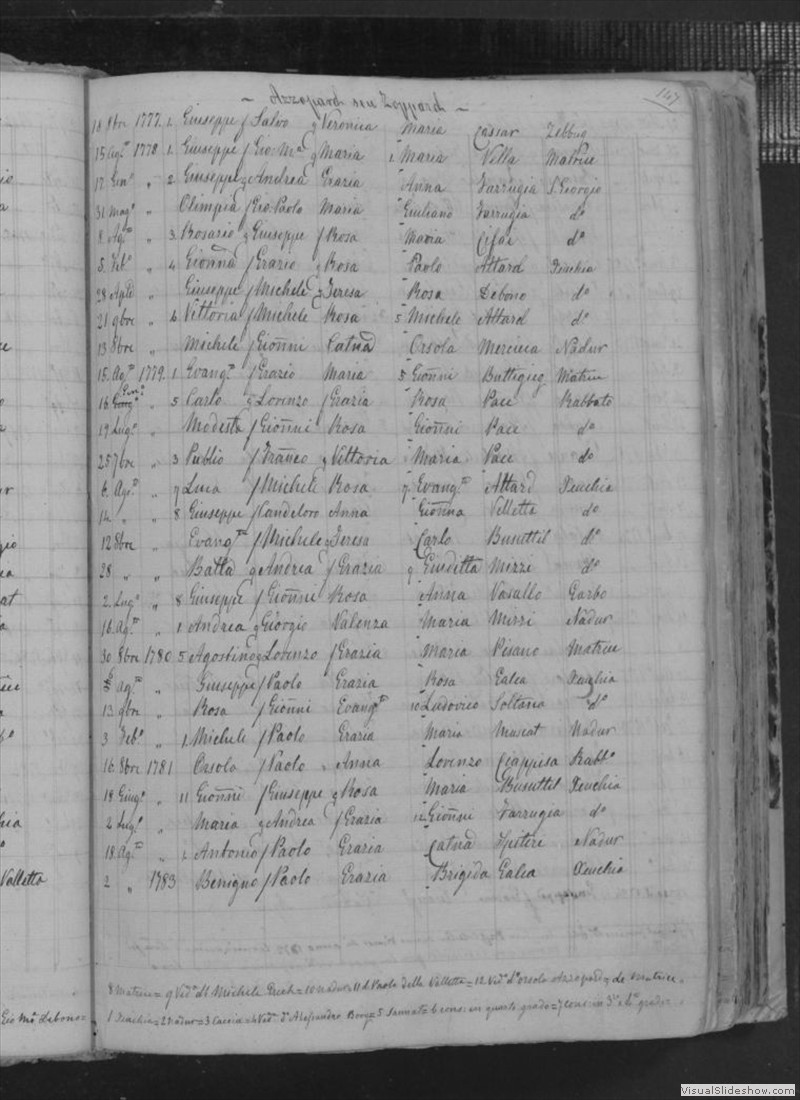 147
Azzopard seu Zoppard
18 8bre 1777. 1. Giuseppe f Salvo q Veronica Maria Cassar Zebbug
15 Ag.to 1778 1. Giuseppe f Gio: M.a q Maria 1 Maria Vella Matrice
17 Gen.o " 2 Giuseppe q Andrea Grazia Anna Farrugia S. Giorgio
31 Mag.o " Olimpia f Gio: Paolo Maria Giuliano Farrugia d.o
8. Ag.to " 3. Rosario q Giuseppe f Rosa Maria d.o
5. Feb.o " 4 Gionna f Grazio q Rosa Paolo Attard Xeuchia
29 Aple " Giuseppe f Michele q Teresa Rosa Debono d.o
21 9bre " 6 Vittoria f Michele Rosa 5 Michele Attard d.o
13 8bre " Michele f Gionni Catna Orsola Mercieca Nadur
15. Ag.to 1779. 1 Evang.ta f Grazio Maria 5 Gionni Buttigieg Matrice
16. Gen.o " 5 Carlo q Lorenzo f Grazia Rosa Pace Rabbato
19 Lug.o " Modesta f Gionni Rosa Gionni Pace d.o
25 7bre " 3 Publio f Franco q Vittoria Maria Pace d.o
6. Ag.to " 7 Luca f Michele Rosa 7. Evang.ta Attard Xeuchia
14 " " 8 Giuseppe f Candeloro Anna Gionna Velletta d.o
12 8bre " Evang.ta f Michele q Teresa Carlo Busuttil d.o
28 " " Batta q Andrea f Grazia 9 Giuditta Mizzi d.o
2. Lug.o " 8 Giuseppe f Gionni Rosa Anna Vasallo Garbo
16. Ag.to " 1 Andrea q Giorgio Valenza Maria Mizzi Nadur
30 8bre 1780 5 Agostino q Lorenzo f Grazia Maria Pisano Matrice
6 Ag.to " Giuseppe f Paolo Grazia Rosa Galea Xeuchia
13 9bre " Rosa f Gionni Evang.ta 10 Ludovico Soltana d.o
3 Feb.o " 1 Michele f Paolo Grazia Maria Muscat Nadur
16 8bre 1781 Orsola f Paolo Anna Lorenzo Rabt.o
18 Giug.o " 11 Gionni f Giuseppe q Rosa Maria Busuttil Xeuchia
2 Lug.o " Maria q Andrea f Grazia 12 Gionni Farrugia d.o
18. Ag.to " 2 Antonio f Paolo Grazia Catna Spiteri Nadur
2 " 1783 Benigno f Paolo Grazia Brigida Galea Xeuchia
8 Matrice = 9 Ved.a di Michele Grech = 10 Nadur = 11 d. Paolo della Valletta = 12 Ved.o d'Orsola Azzopard q de Matrice.
1 Xeuchia = 2 Nadur = 3 Caccia = 4 Ved.a d'Alessandro Borg = 5 Sannat = 6 cons: in quarto grado = 7 cons: in 3.o e 4.o grado
Valletta
Gio M.a Debono =
VisualSlideshow.com